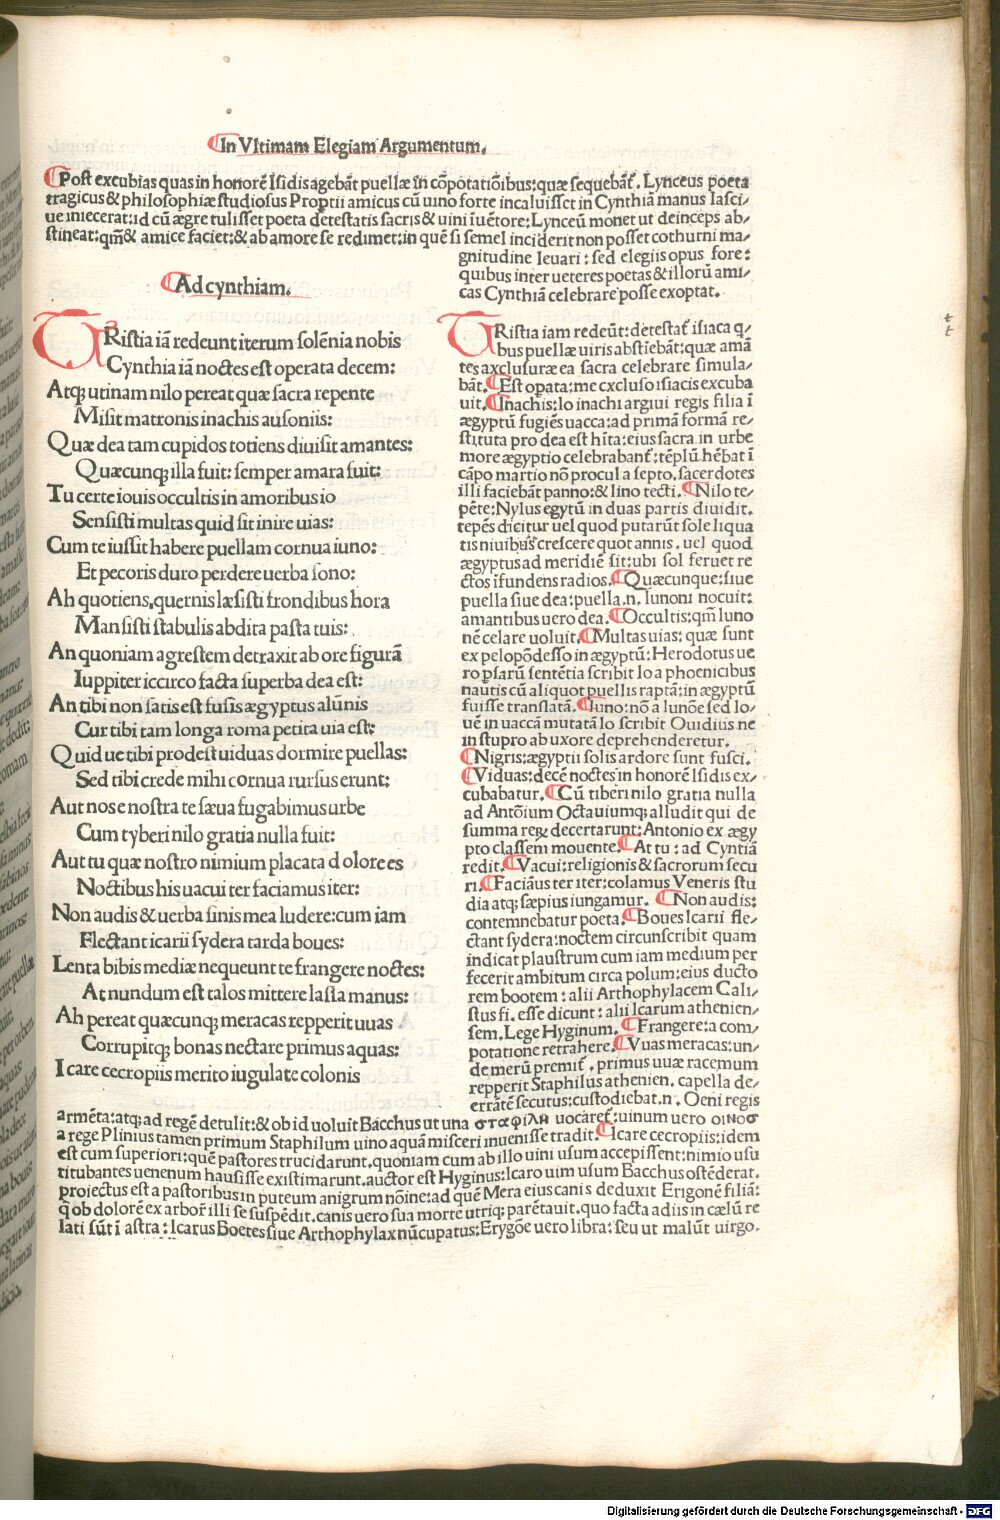 In Vltimam Elegiam Argumentum.
Post excubias quas in honorē Isidis agebāt puellæ in cōpotatiōibus: quæ sequebāt͛. Lynceus poeta
tragicus & philosophiæ studiosus Proptii amicus cū uino forte incaluisset in Cynthiā manus lasci/
ue iniecerat: id cū ægre tulisset poeta detestatis sacris & uini īuētore: Lynceū monet ut deinceps ab/
stineat: qm̄ & amice faciet: & ab amore se redimet: in quē si semel inciderit non posset cothurni ma/
gnitudine leuari: sed elegiis opus fore:
quibus inter ueteres poetas & illorū ami/
cas Cynthiā celebrare posse exoptat.
Ad cynthiam.
TRistia iā redeunt iterum solēnia nobis
Cynthia iā noctes est operata decem:
Atq; utinam nilo pereat quæ sacra repente
Misit matronis inachis ausoniis:
Quæ dea tam cupidos totiens diuisit amantes:
Quæcunq; illa fuit: semper amara fuit:
Tu certe iouis occultis in amoribus io
Sensisti multas quid sit inire uias:
Cum te iussit habere puellam cornua iuno:
Et pecoris duro perdere uerba sono:
Ah quotiens, quernis læsisti frondibus hora
Mansisti stabulis abdita pasta tuis:
An quoniam agrestem detraxit ab ore figurā
Iuppiter iccirco facta superba dea est:
An tibi non satis est fusis ægyptus alūnis
Cur tibi tam longa roma petita uia est:
Quid ue tibi prodest uiduas dormire puellas:
Sed tibi crede mihi cornua rursus erunt:
Aut nos e nostra te sæua fugabimus urbe
Cum tyberi nilo gratia nulla fuit:
Aut tu quæ nostro nimium placata dolore es
Noctibus his uacui ter faciamus iter:
Non audis & uerba sinis mea ludere: cum iam
Flectant icarii sydera tarda boues:
Lenta bibis mediæ nequeunt te frangere noctes:
At nundum est talos mittere lassa manus:
Ah pereat quæcunq; meracas repperit uuas
Corrupitq; bonas nectare primus aquas:
Icare cecropiis merito iugulate colonis
TRistia iam redeūt: detestat͛ isiaca q/
bus puellæ uiris abstīebāt: quæ amā
tes axclusuræ ea sacra celebrare simula/
bāt. Est opata: me exclusο isiacis excuba
uit. Inachis: Io inachi argiui regis filia ī
ægyptū fugiēs uacca: ad primā formā re/
stituta pro dea est hīta: eius sacra in urbe
more ægyptio celebrabant͛: tēplū hēbat ī
cāpo martio nō procul a septo, sacerdotes
illi faciebāt panno: & lino tecti. Nilo re/
pēte: Nylus egytū in duas partis diuidit.
tepēs dicitur uel quod putarūt sole liqua
tis niuibus crescere quot annis. uel quod
ægyptus ad meridiē sit: ubi sol feruet re
ctos īfundens radios. Quæcunque: siue
puella siue dea: puella .n. Iunoni nocuit:
amantibus uero dea. Occultis: qm̄ Iuno
nē celare uoluit. Multas uias: quæ sunt
ex pelopōdesso in ægyptū: Herodotus ue
ro psarū sentētia scribit Io a phoenicibus
nautis cū aliquot puellis raptā: in ægyptū
fuisse translatā. Iuno: nō a Iunōe sed Io/
uē in uaccā mutatā Io scribit Ouidius ne
in stupro ab uxore deprehenderetur.
Nigris: ægyptii solis ardore sunt fusci.
Viduas: decē noctes in honorē Isidis ex/
cubabatur. Cū tiberi nilo gratia nulla
ad Antōium Octauiumq; alludit qui de
summa reꝝ decertarunt: Antonio ex ægy
pto classem mouente. At tu: ad Cyntiā
redit. Vacui: religionis & sacrorum secu
ri. Faciāus ter iter: colamus Veneris stu
dia atq; sæpius iungamur. Non audis:
contemnebatur poeta. Boues Icarii fle/
ctant sydera: noctem circunscribit quam
indicat plaustrum cum iam medium per
fecerit ambitum circa polum: eius ducto
rem bootem: alii Arthophylacem Cali/
stus fi. esse dicunt: alii Icarum athenien/
sem. Lege Hyginum. Frangere: a com/
potatione retrahere. Vuas meracas: un/
de merū premit͛. primus uuæ racemum
repperit Staphilus athenien. capella de/
erratē secutus: custodiebat .n. Oeni regis
armēta: atq; ad regē detulit: & ob id uoluit Bacchus ut una σταφιλη uocaret͛: uinum uero οινοσ
a rege Plinius tamen primum Staphilum uino aquā misceri inuenisse tradit. Icare cecropiis: idem
est cum superiori: quē pastores trucidarunt, quoniam cum ab illo uini usum accepissent: nimio usu
titubantes uenenum hausisse existimarunt. auctor est Hyginus: Icaro uim usum Bacchus ostēderat.
proiectus est a pastoribus in puteum anigrum nōine: ad quē Mera eius canis deduxit Erigonē filiā:
q̄ ob dolorē ex arboř illi se suspēdit. canis uero sua morte utriq; parētauit. quo facta ad iis in cælū re
lati sūt ī astra: Icarus Boetes siue Arthophylax nūcupatus: Erygōe uero libra: seu ut malūt uirgo.
Digitalisierung gefördert durch die Deutsche Forschungsgemeinschaft - DFG